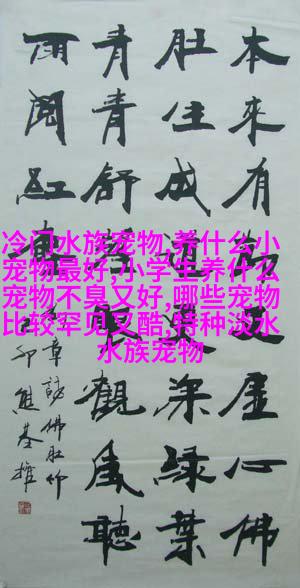 冷门水族宠物,养什么小
宠物最好,小学生养什么
宠物不臭又好,哪些宠物
比较罕见又酷,特种淡水
水族宠物
本來有虛心佛
肚生成深綠葉
青青舒觀風聽
雨闻红
章詠佛肚竹
卯熊基